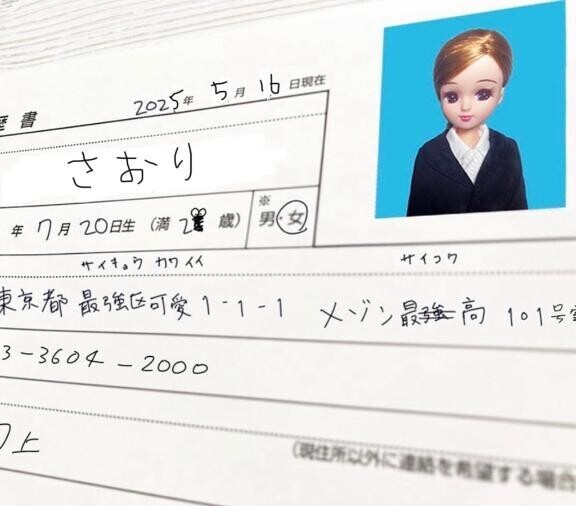 2025年 5月 16日現在
歴書
さおり
年 7月 20日生 (満 2 歳)
※
男・女
サイキョウ カワイイ
サイコウ
東京都 最強区可愛1-1-1 メゾン最強高 101号室
3-3604-2000
上
(現住所以外に連絡を希望する場合